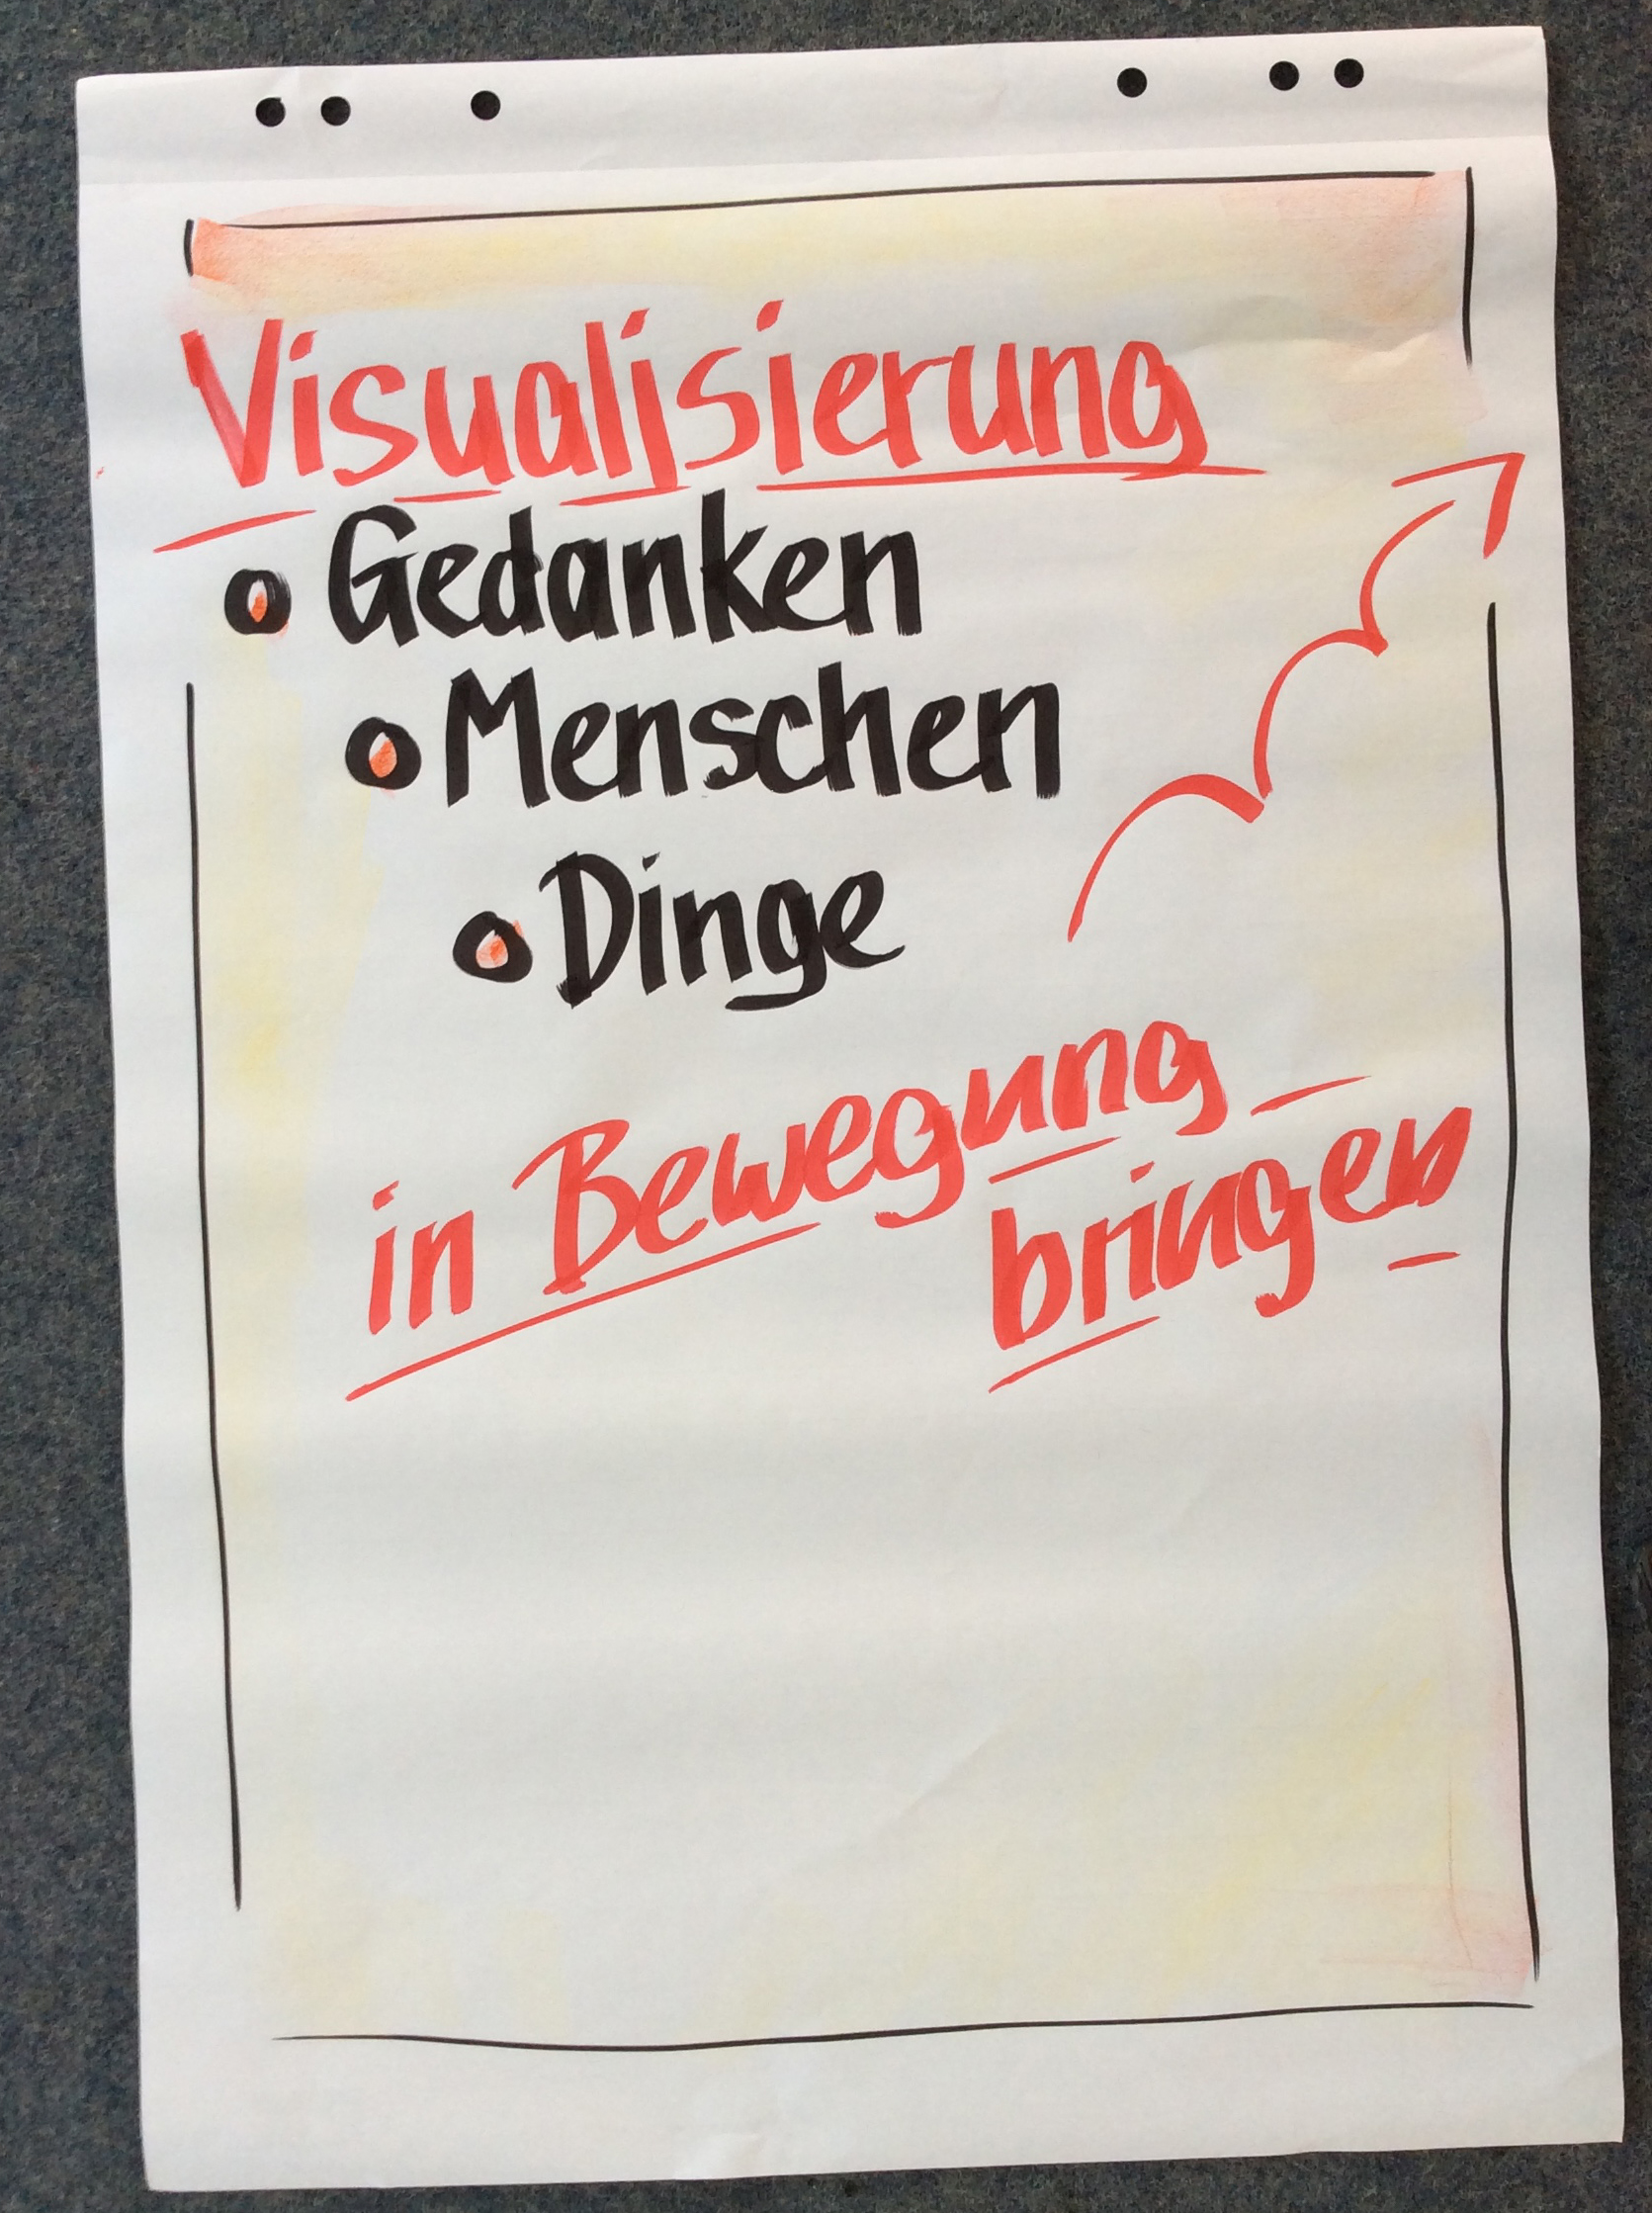 Visualisierung
Gedanken
Menschen
Dinge
in Bewegung
bringen